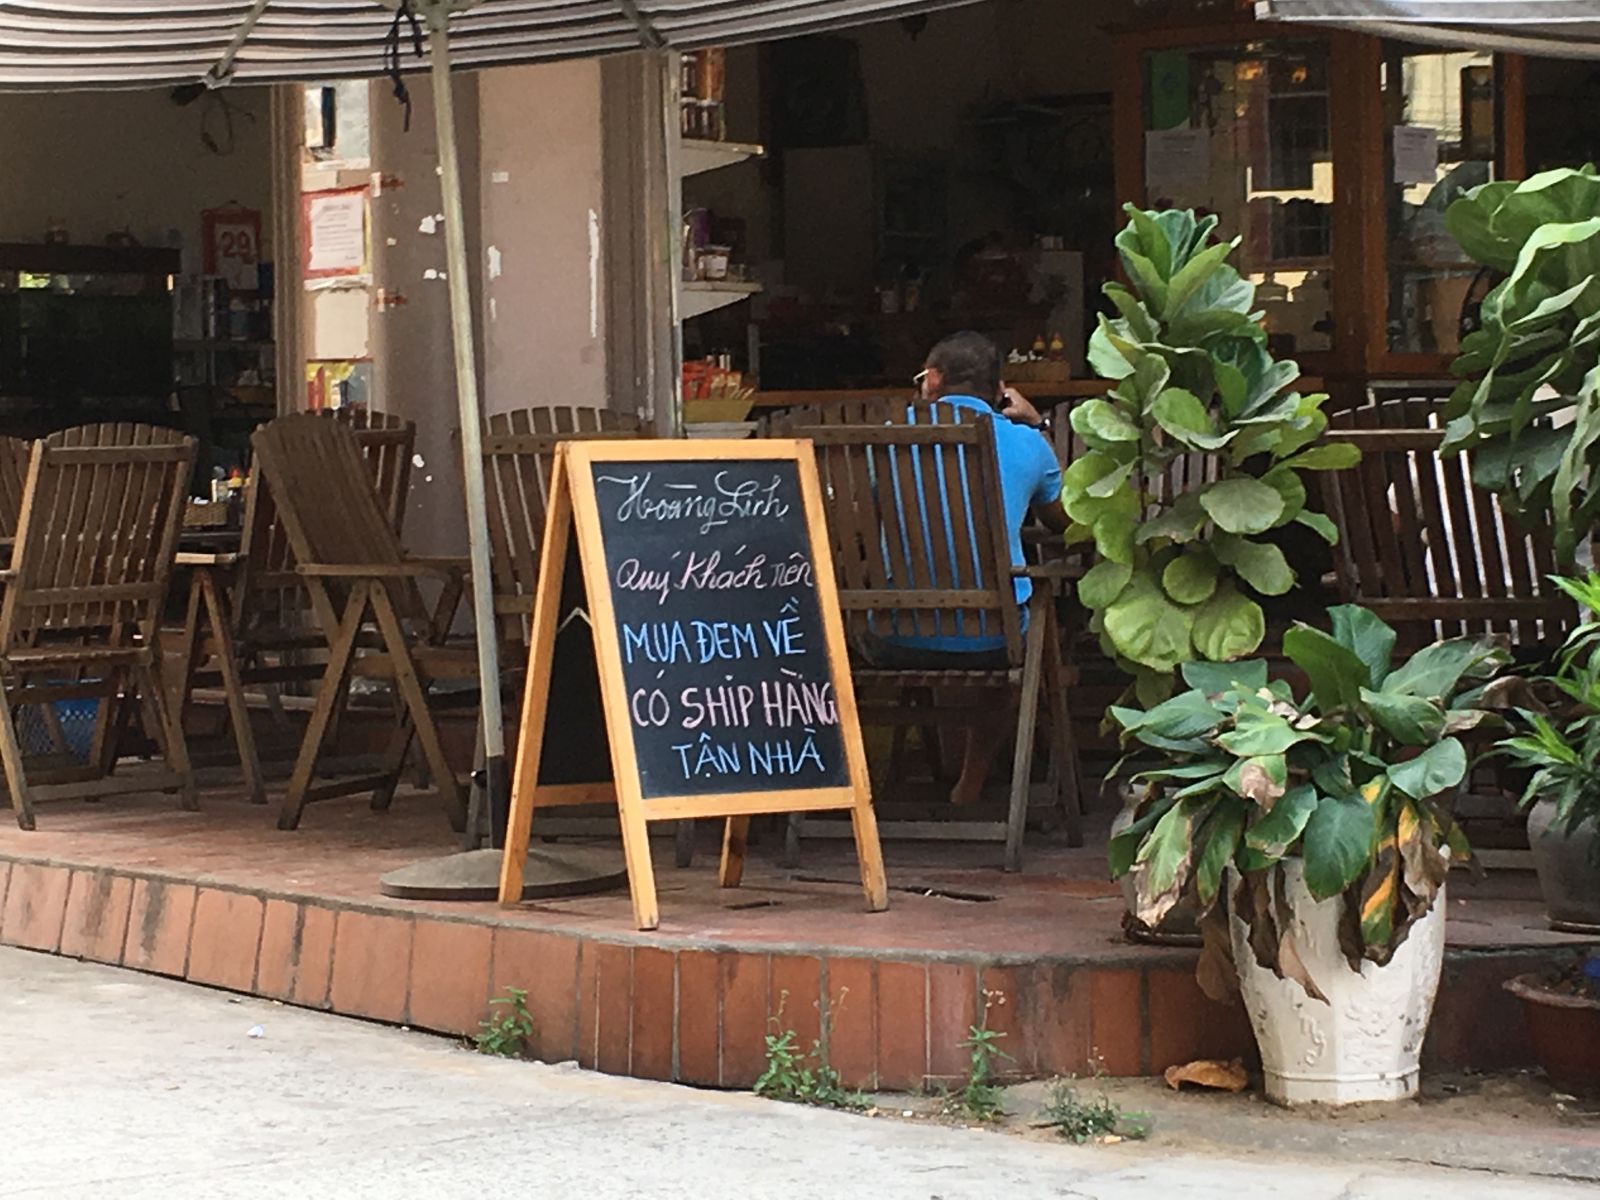 29
Hoàng Linh
Quý Khách nên
MUA ĐEM VỀ
CÓ SHIP HÀNG
TẬN NHÀ